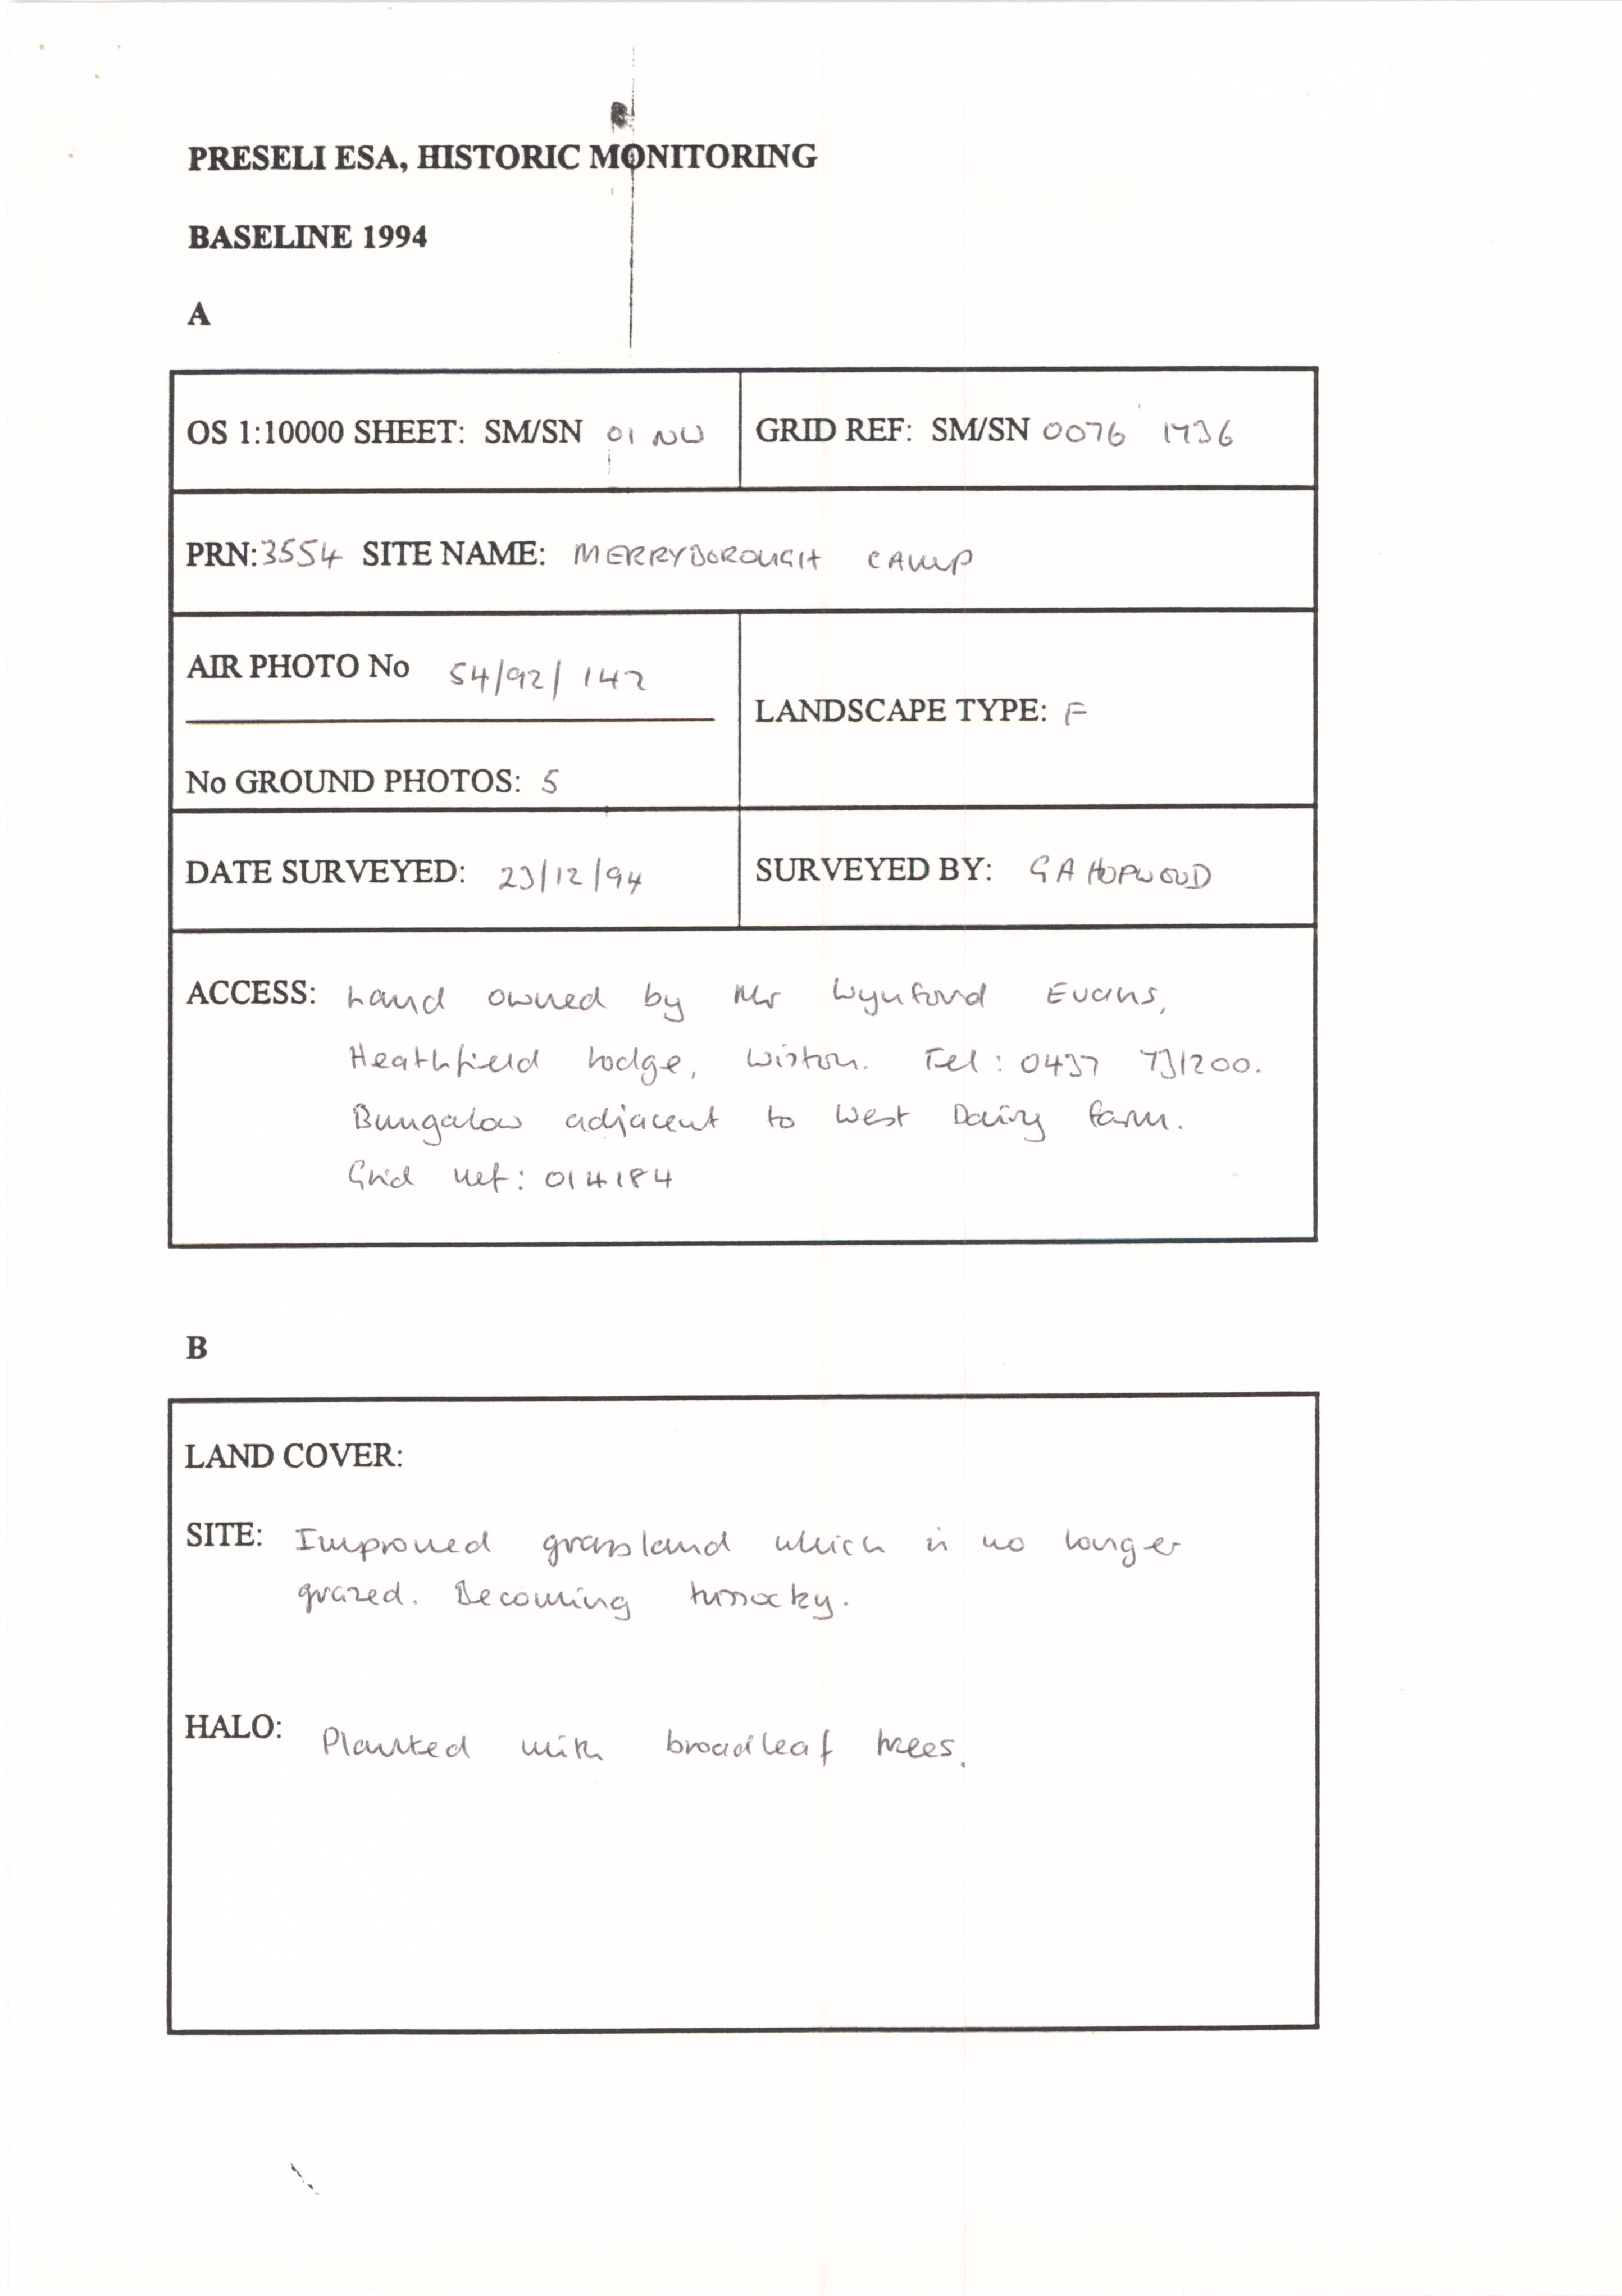 PRESELI ESA, HISTORIC MONITORING
BASELINE 1994
A
OS 1:10000 SHEET: SM/SN 01 NW
GRID REF: SM/SN 0076 1736
PRN: 3554 SITE NAME: MERRYBOROUGH CAMP
AIR PHOTO No 54/92/ 142
LANDSCAPE TYPE: F
No GROUND PHOTOS: 5
DATE SURVEYED: 23/12/94
SURVEYED BY: G A HOPWOOD
ACCESS: Land owned by Mr Wynford Evans,
Heathfield Lodge, Wiston. Tel: 0437 731200.
Bungalow adjacent to West Dairy farm.
Grid ref: 014184
B
LAND COVER:
SITE: Improved grassland which is no longer
grazed. Becoming tussocky.
HALO: Planted with broadleaf trees.